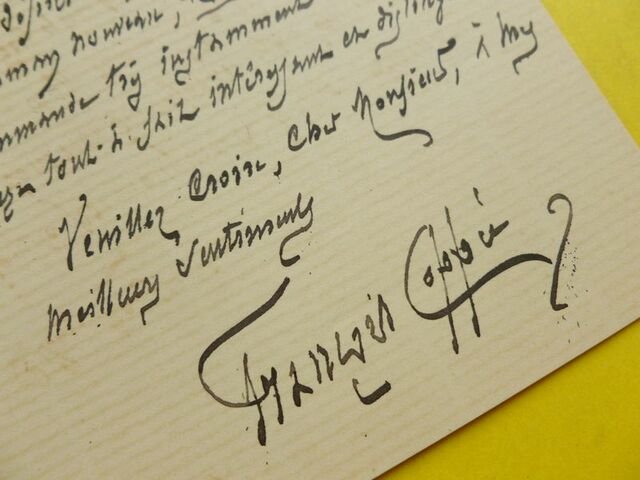 nouveau,
très instamment
tout-à-fait intéressant et
Veuillez croire, cher Monsieur, à mes
meilleurs sentiments
François Coppée